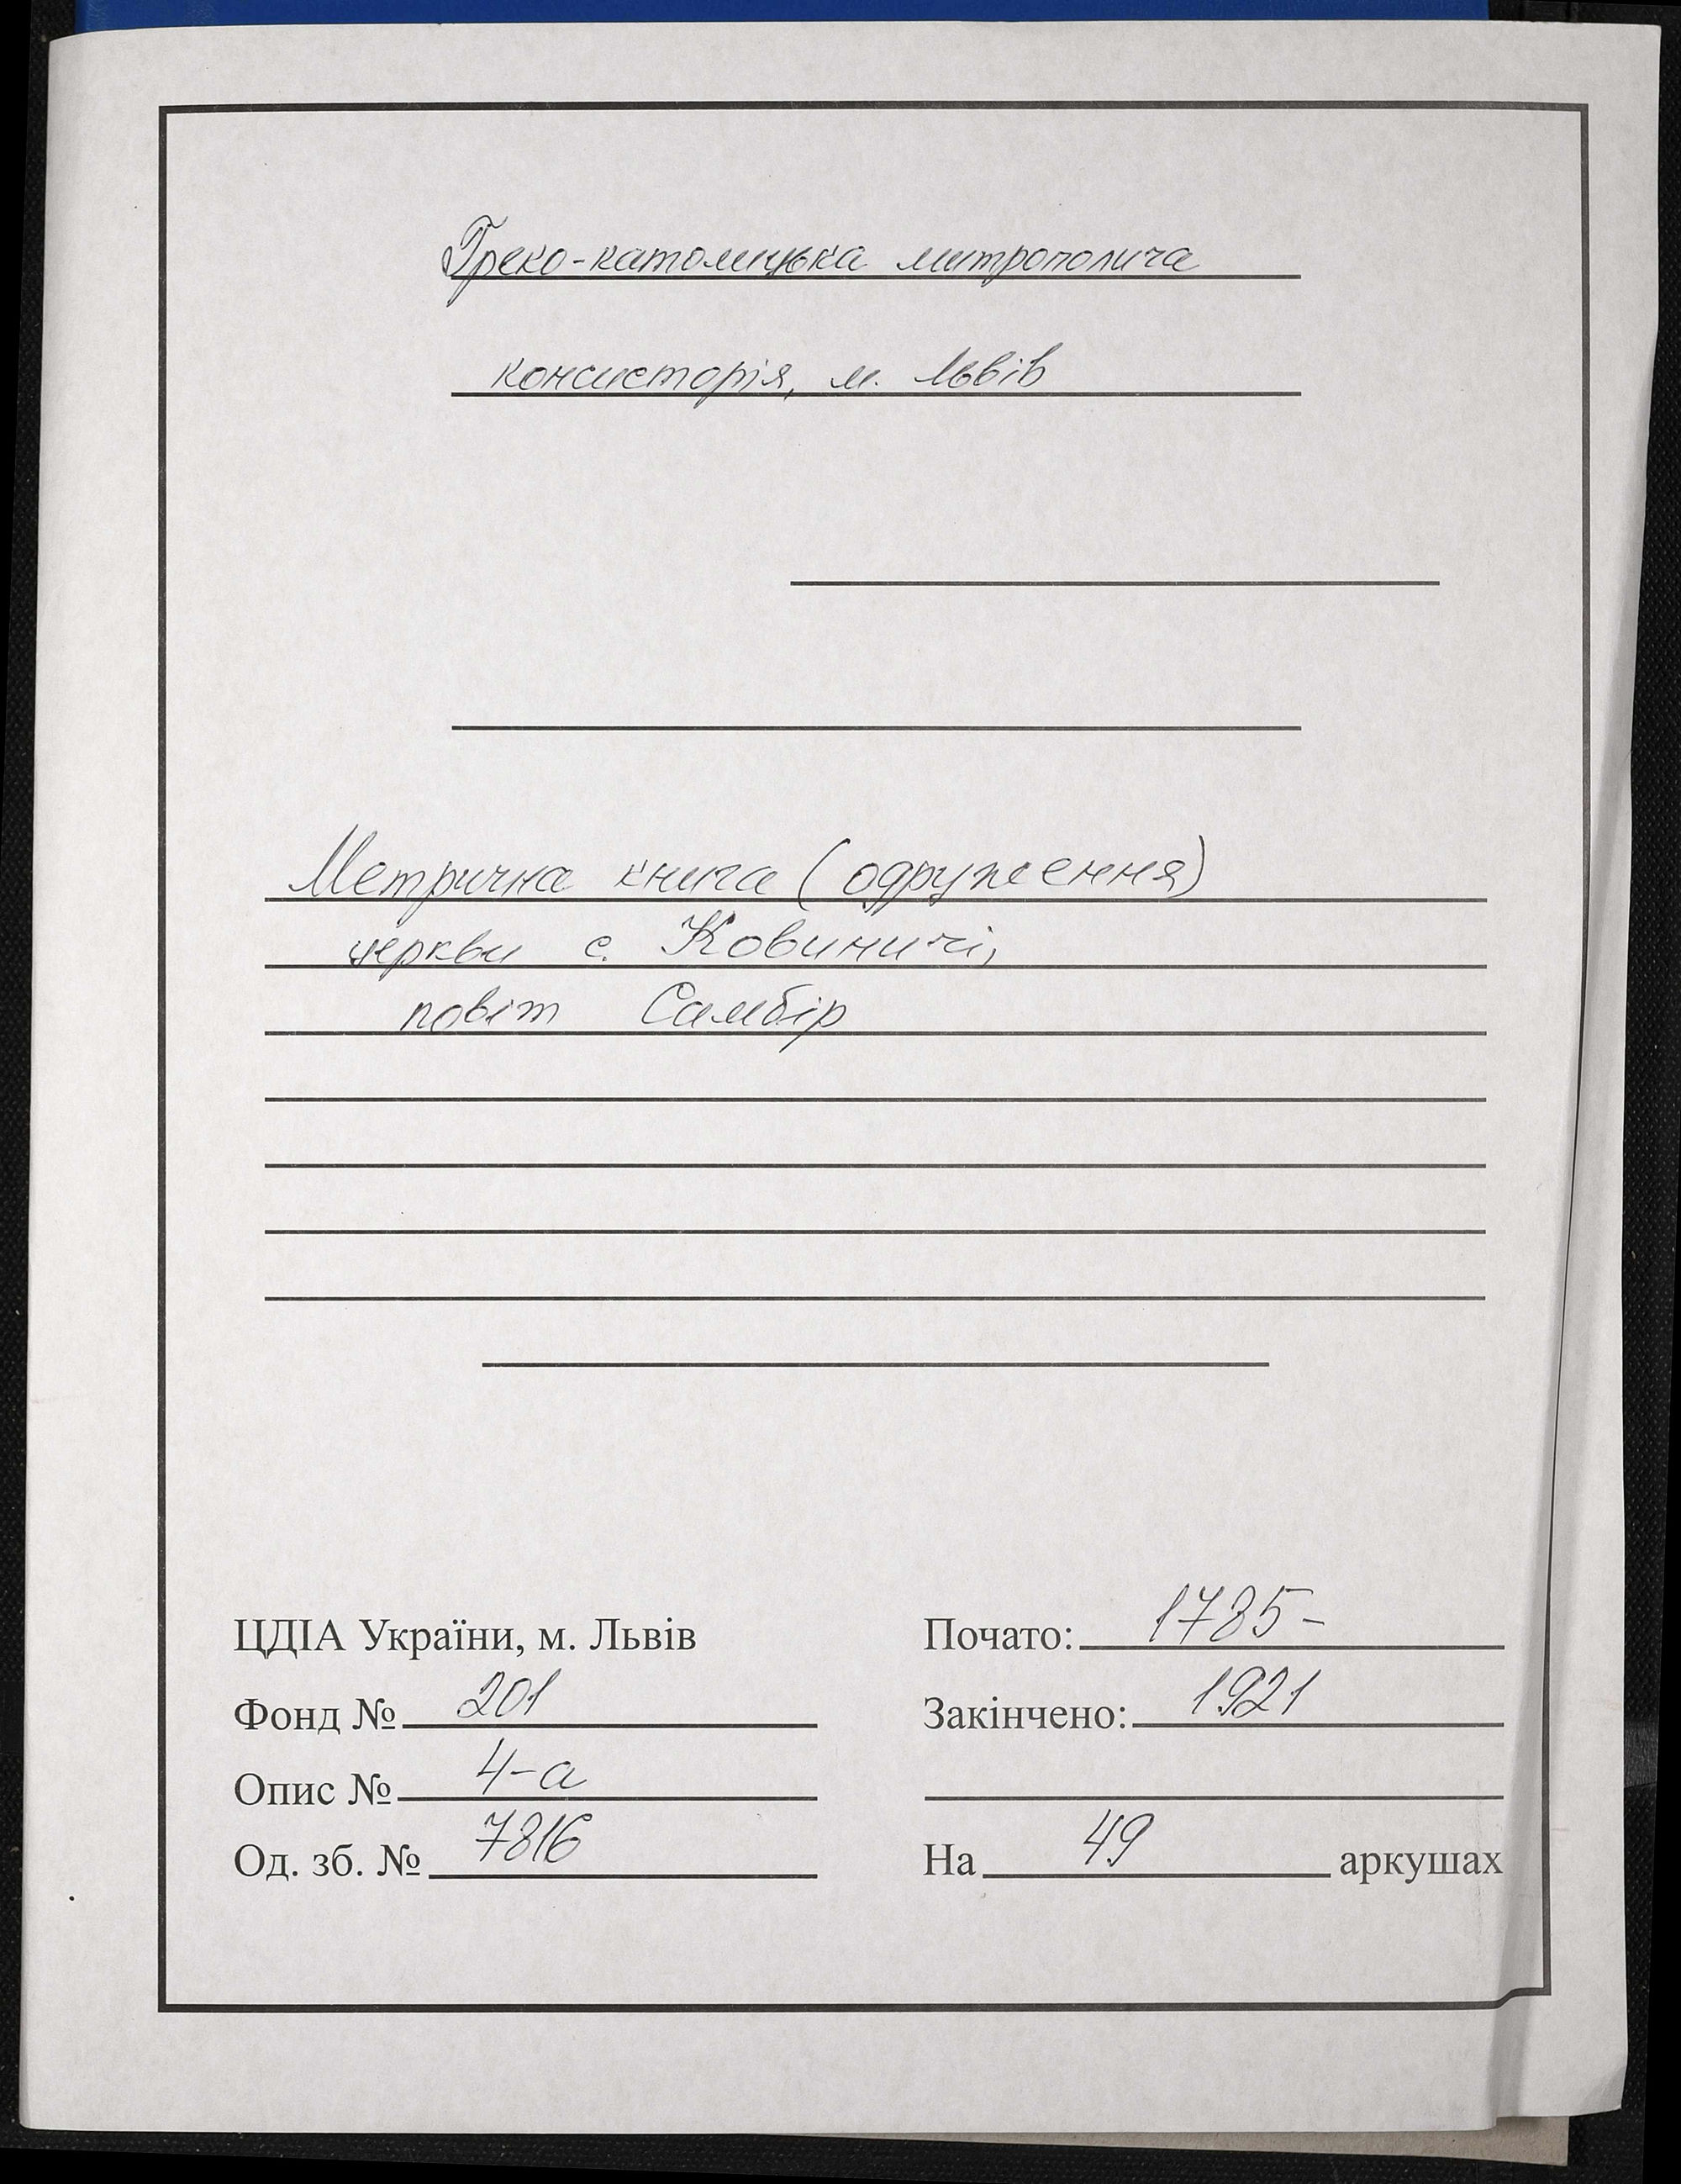 Греко-католицька митрополича
консисторія, м. Львів
Метрична книга (одруження)
церкви с. Ковиничі,
повіт Самбір
ЦДІА України, м. Львів
Фонд № 201
Опис № 4-а
Од. зб. № 7816
Почато: 1785-
Закінчено: 1921
На 49 аркушах